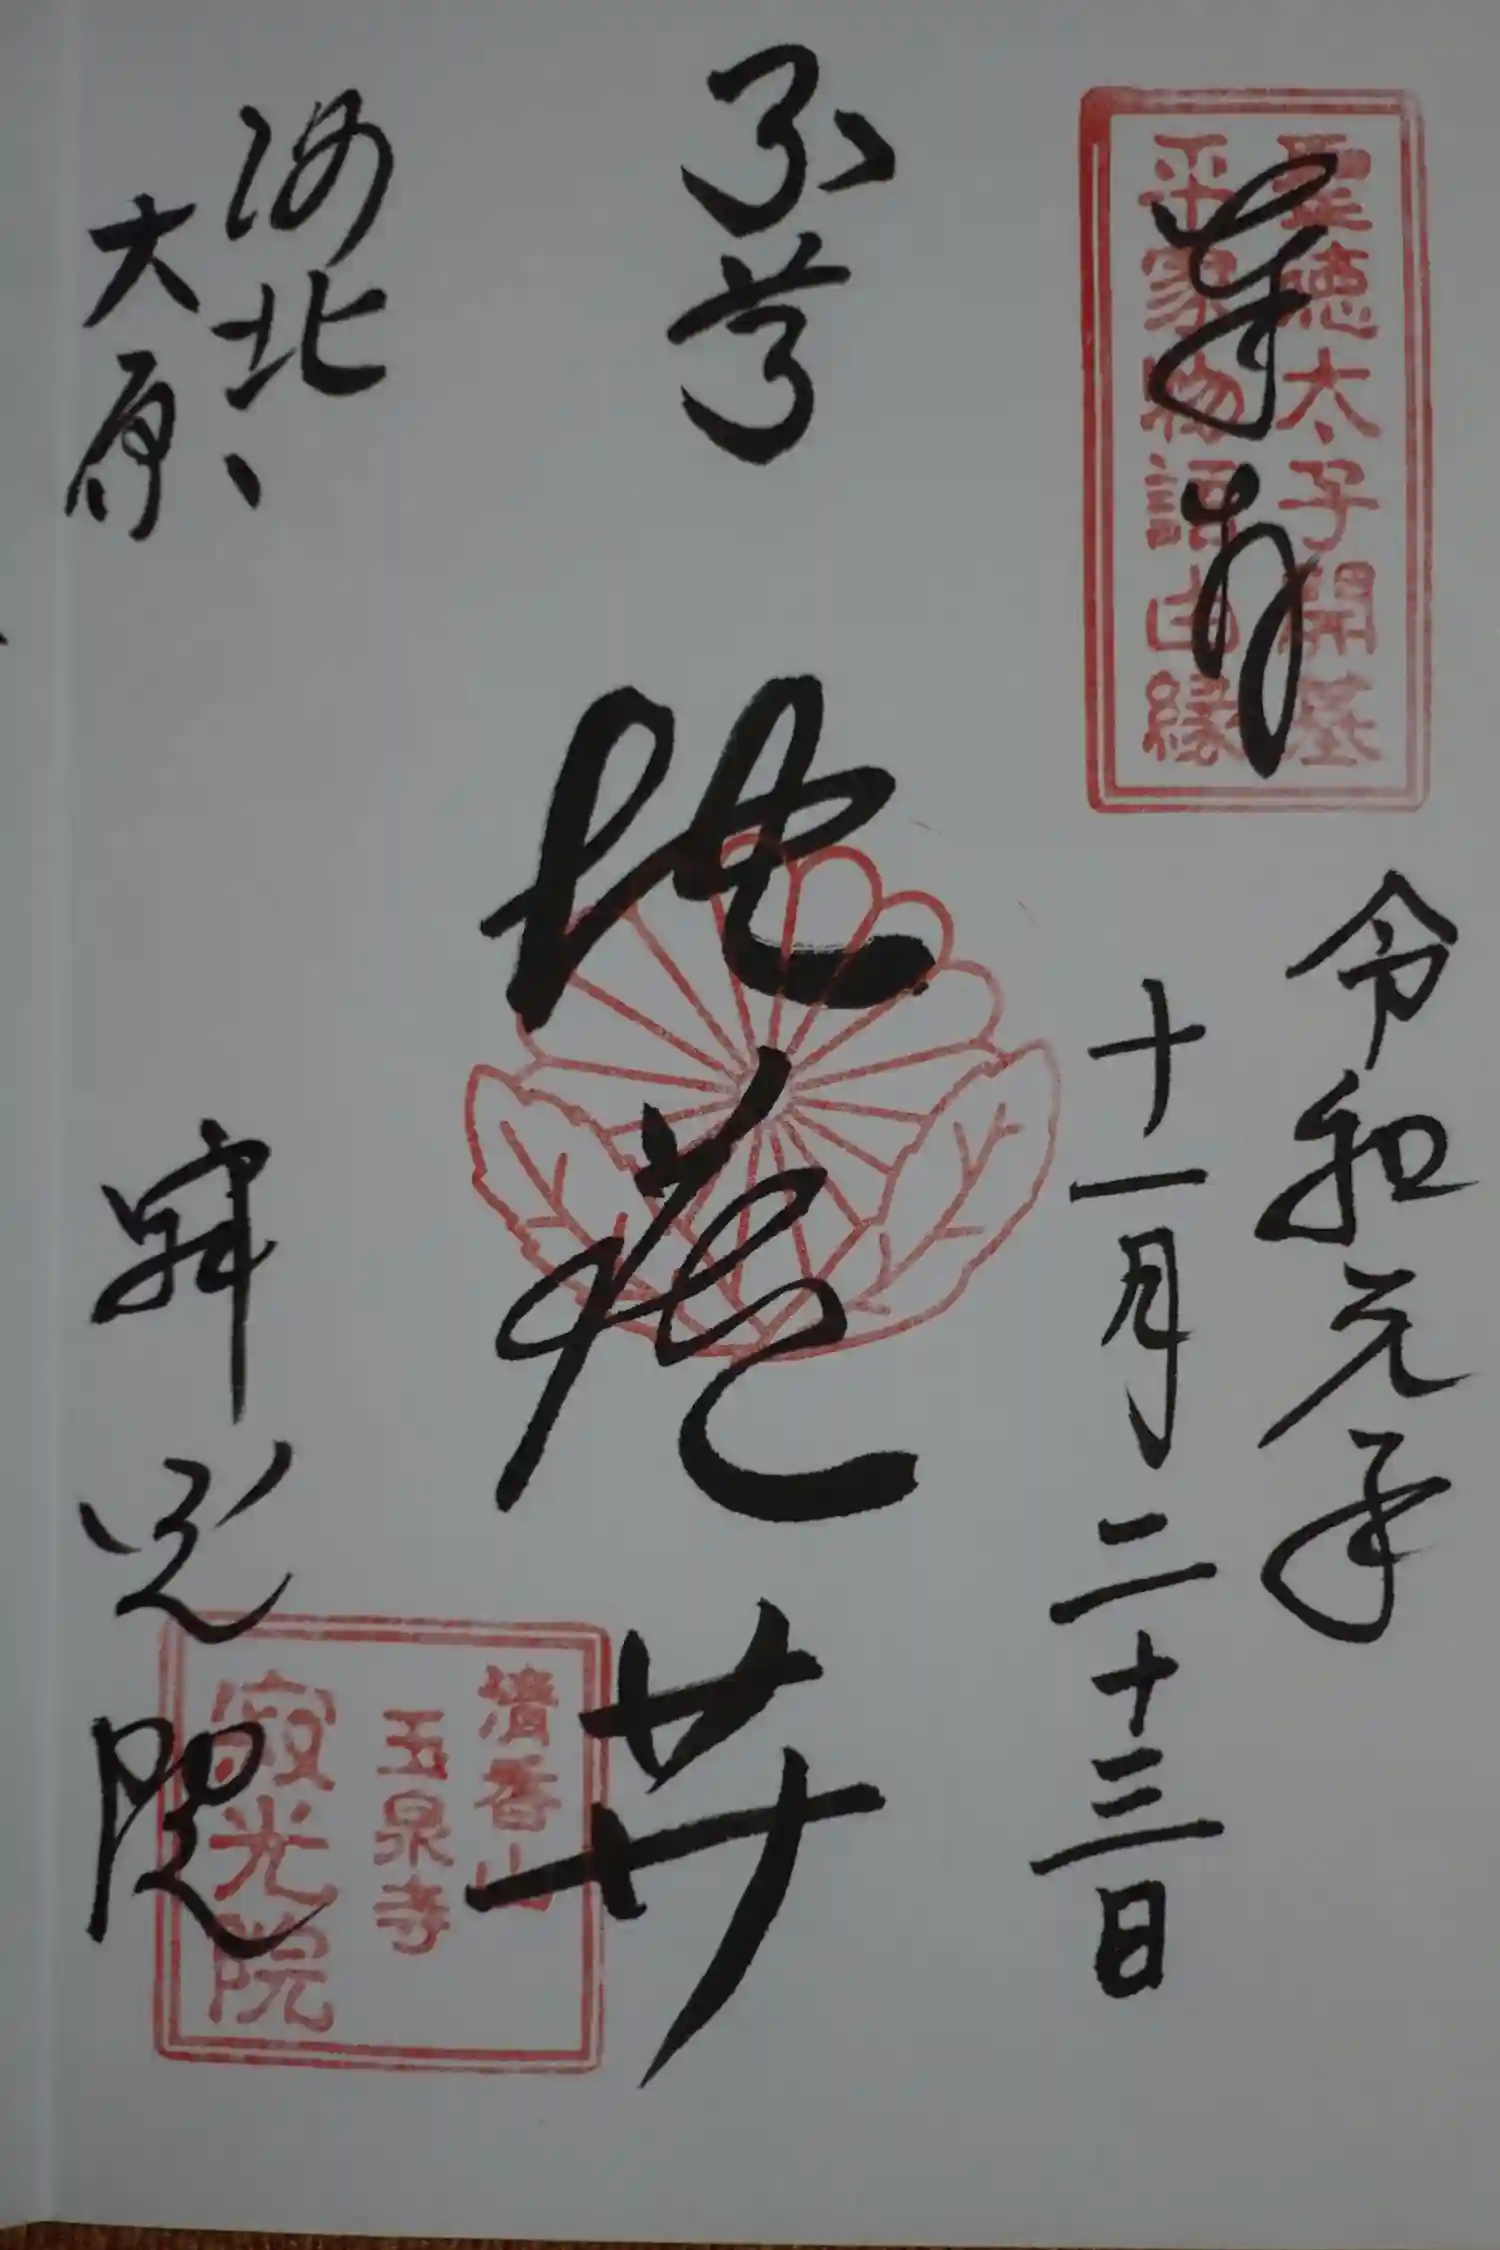 奉拝
聖徳太子開基
平家物語由緣
令和元年
十一月二十三日
地蔵井
清香山
玉泉寺
寂光院
洛北
大原
寂光院